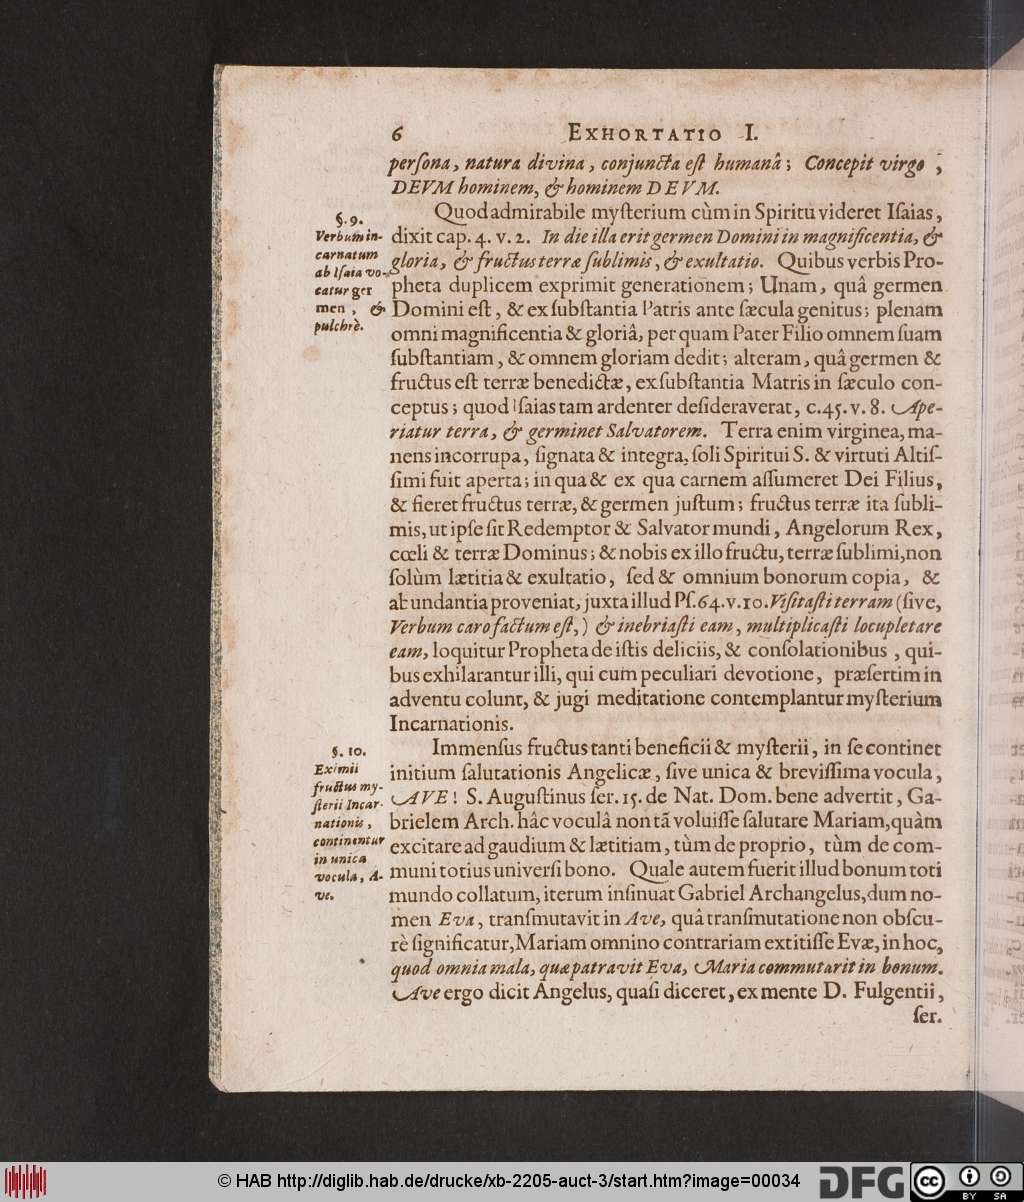 6 EXHORTATIO I.
perſona, natura divina, conjuncta eſt humanâ; Concepit virgo,
DEVM hominem, & hominem DEVM.
§. 9.
Verbum in-
carnatum
ab Iſaia vo-
catur ger
men, &
pulchrè.
Quod admirabile myſterium cùm in Spiritu videret Iſaias,
dixit cap. 4. v. 2. In die illa erit germen Domini in magnificentia, &
gloria, & fructus terræ ſublimis, & exultatio. Quibus verbis Pro-
pheta duplicem exprimit generationem; Unam, quâ germen
Domini eſt, & ex ſubſtantia Patris ante ſæcula genitus; plenam
omni magnificentia & gloriâ, per quam Pater Filio omnem ſuam
ſubſtantiam, & omnem gloriam dedit; alteram, quâ germen &
fructus eſt terræ benedictæ, ex ſubſtantia Matris in ſæculo con-
ceptus; quod Iſaias tam ardenter deſideraverat, c. 45. v. 8. Ape-
riatur terra, & germinet Salvatorem. Terra enim virginea, ma-
nens incorrupa, ſignata & integra, ſoli Spiritui S. & virtuti Altiſ-
ſimi fuit aperta; in qua & ex qua carnem aſſumeret Dei Filius,
& fieret fructus terræ, & germen juſtum; fructus terræ ita ſubli-
mis, ut ipſe ſit Redemptor & Salvator mundi, Angelorum Rex,
cœli & terræ Dominus; & nobis ex illo fructu, terræ ſublimi, non
ſolùm lætitia & exultatio, ſed & omnium bonorum copia, &
abundantia proveniat, juxta illud Pſ. 64. v. 10. Viſitaſti terram (ſive,
Verbum caro factum eſt,) & inebriaſti eam, multiplicaſti locupletare
eam, loquitur Propheta de iſtis deliciis, & conſolationibus, qui-
bus exhilarantur illi, qui cum peculiari devotione, præſertim in
adventu colunt, & jugi meditatione contemplantur myſterium
Incarnationis.
§. 10.
Eximii
fructus my-
ſterii Incar-
nationis,
continentur
in unica
vocula, A-
ve.
Immenſus fructus tanti beneficii & myſterii, in ſe continet
initium ſalutationis Angelicæ, ſive unica & breviſſima vocula,
AVE! S. Auguſtinus ſer. 15. de Nat. Dom. bene advertit, Ga-
brielem Arch. hâc voculâ non tā voluiſſe ſalutare Mariam, quàm
excitare ad gaudium & lætitiam, tùm de proprio, tùm de com-
muni totius univerſi bono. Quale autem fuerit illud bonum toti
mundo collatum, iterum inſinuat Gabriel Archangelus, dum no-
men Eva, tranſmutavit in Ave, quâ tranſmutatione non obſcu-
rè ſignificatur, Mariam omnino contrariam extitiſſe Evæ, in hoc,
quod omnia mala, quæ patravit Eva, Maria commutarit in bonum.
Ave ergo dicit Angelus, quaſi diceret, ex mente D. Fulgentii,
ſer.
© HAB http://diglib.hab.de/drucke/xb-2205-auct-3/start.htm?image=00034
DFG
cc
BY SA